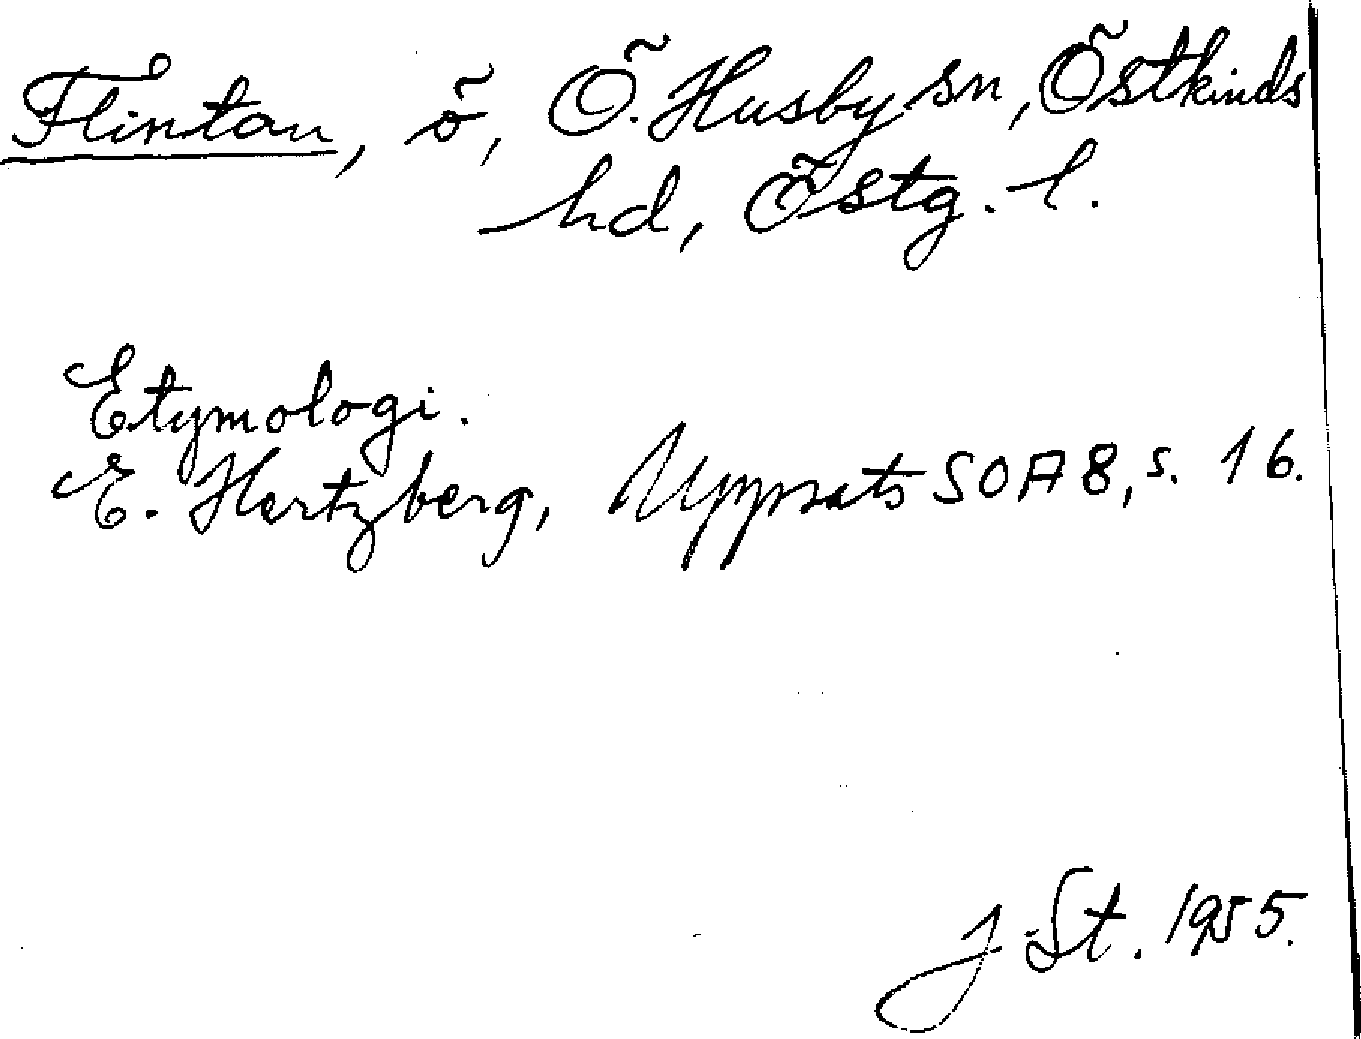 Flintan, ö, Ö. Husby sn, Östkinds
hd, Östg. l.
Etymologi.
E. Hertzberg, Uppsats SOA 8, s. 16.
J. St. 1955.